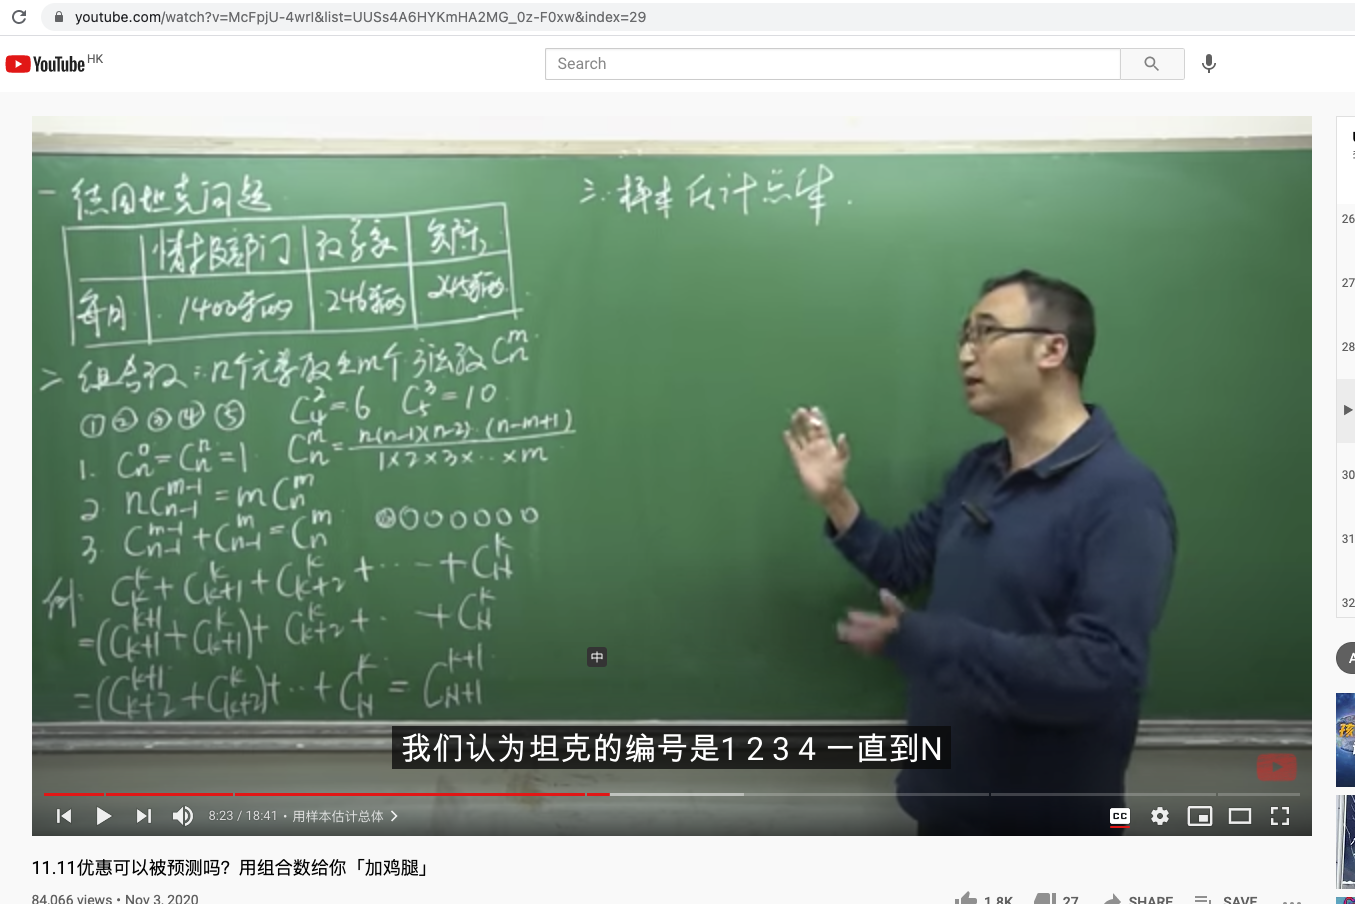 youtube.com/watch?v=McFpjU-4wrI&list=UUSs4A6HYKmHA2MG_0z-F0xw&index=29
YouTube HK
Search
一 德国坦克问题
情报部门 数学家 实际
每月 1400辆 246辆 245辆
二 组合数:n个元素取出m个方法数 Cₙᵐ
① ② ③ ④ ⑤ C₄²=6 C₅³=10
1. Cₙ⁰=Cₙⁿ=1 Cₙᵐ=n(n-1)(n-2)..(n-m+1)
1×2×3×...×m
2. nCₙ₋₁ᵐ⁻¹=mCₙᵐ
3. Cₙ₋₁ᵐ⁻¹+Cₙ₋₁ᵐ=Cₙᵐ
例: C_k^k+C_{k+1}^k+C_{k+2}^k+...+C_N^k
=(C_{k+1}^{k+1}+C_{k+1}^k)+C_{k+2}^k+..+C_N^k
=(C_{k+2}^{k+1}+C_{k+2}^k)+..+C_N^k=C_{N+1}^{k+1}
三. 样本估计总体.
中
我们认为坦克的编号是1 2 3 4 一直到N
8:23 / 18:41 • 用样本估计总体
CC
11.11优惠可以被预测吗？用组合数给你「加鸡腿」
84,066 views • Nov 3, 2020
1.8K 27 SHARE SAVE
26
27
28
30
31
32